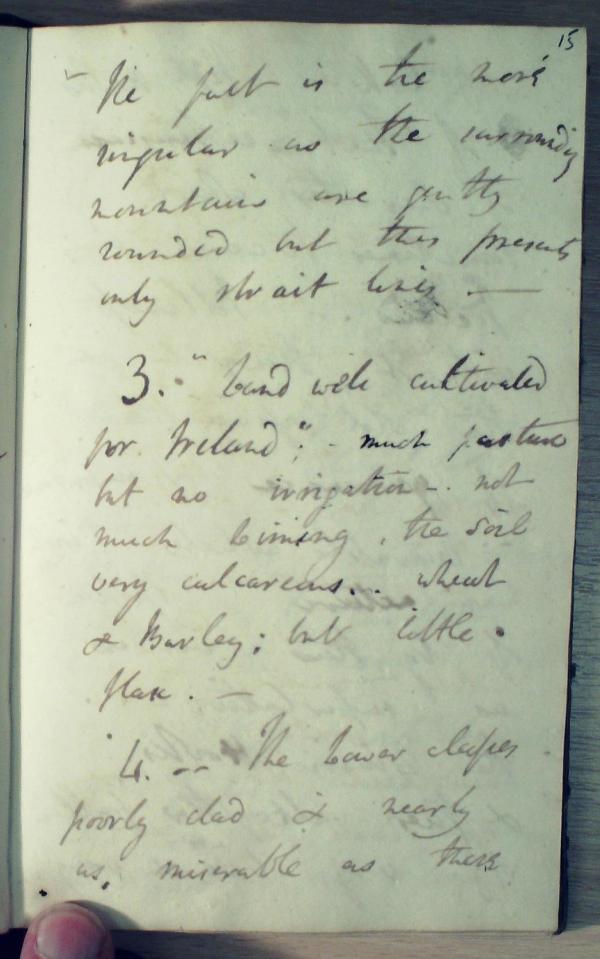 15
The fact is the more
singular as the surrounding
mountains are gently
rounded but this presents
only strait lines. —
3. "Land well cultivated
for Ireland": - much pasture
but no irrigation -. not
much liming, the soil
very calcareous.. wheat
& Barley; but little
flax. —
4. -- The lower classes
poorly clad & nearly
as miserable as those